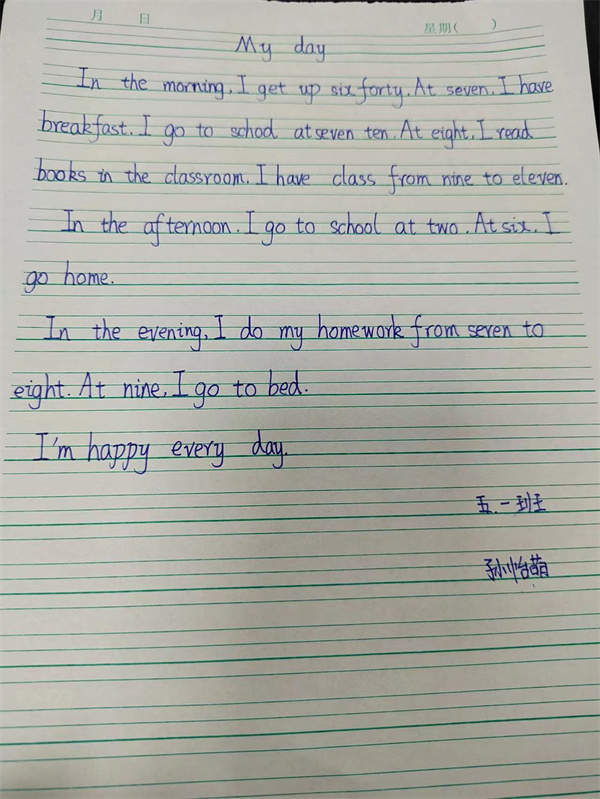 月 日 星期( )
My day
In the morning, I get up six forty. At seven, I have
breakfast. I go to school at seven ten. At eight, I read
books in the classroom. I have class from nine to eleven.
In the afternoon. I go to school at two. At six, I
go home.
In the evening, I do my homework from seven to
eight. At nine, I go to bed.
I'm happy every day.
五.一班
孙怡萌